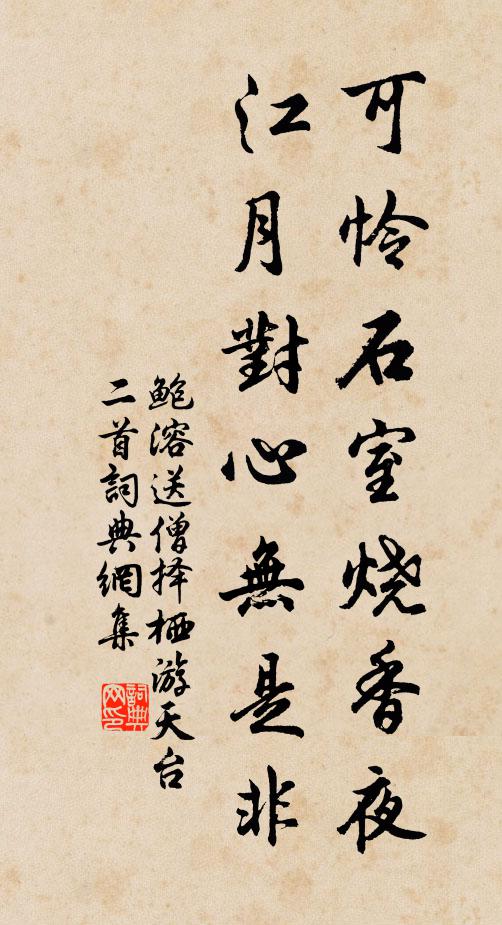 可怜石室烧香夜
江月對心無是非
鲍溶送僧择栖游天台
二首詞典網集
詞典网印